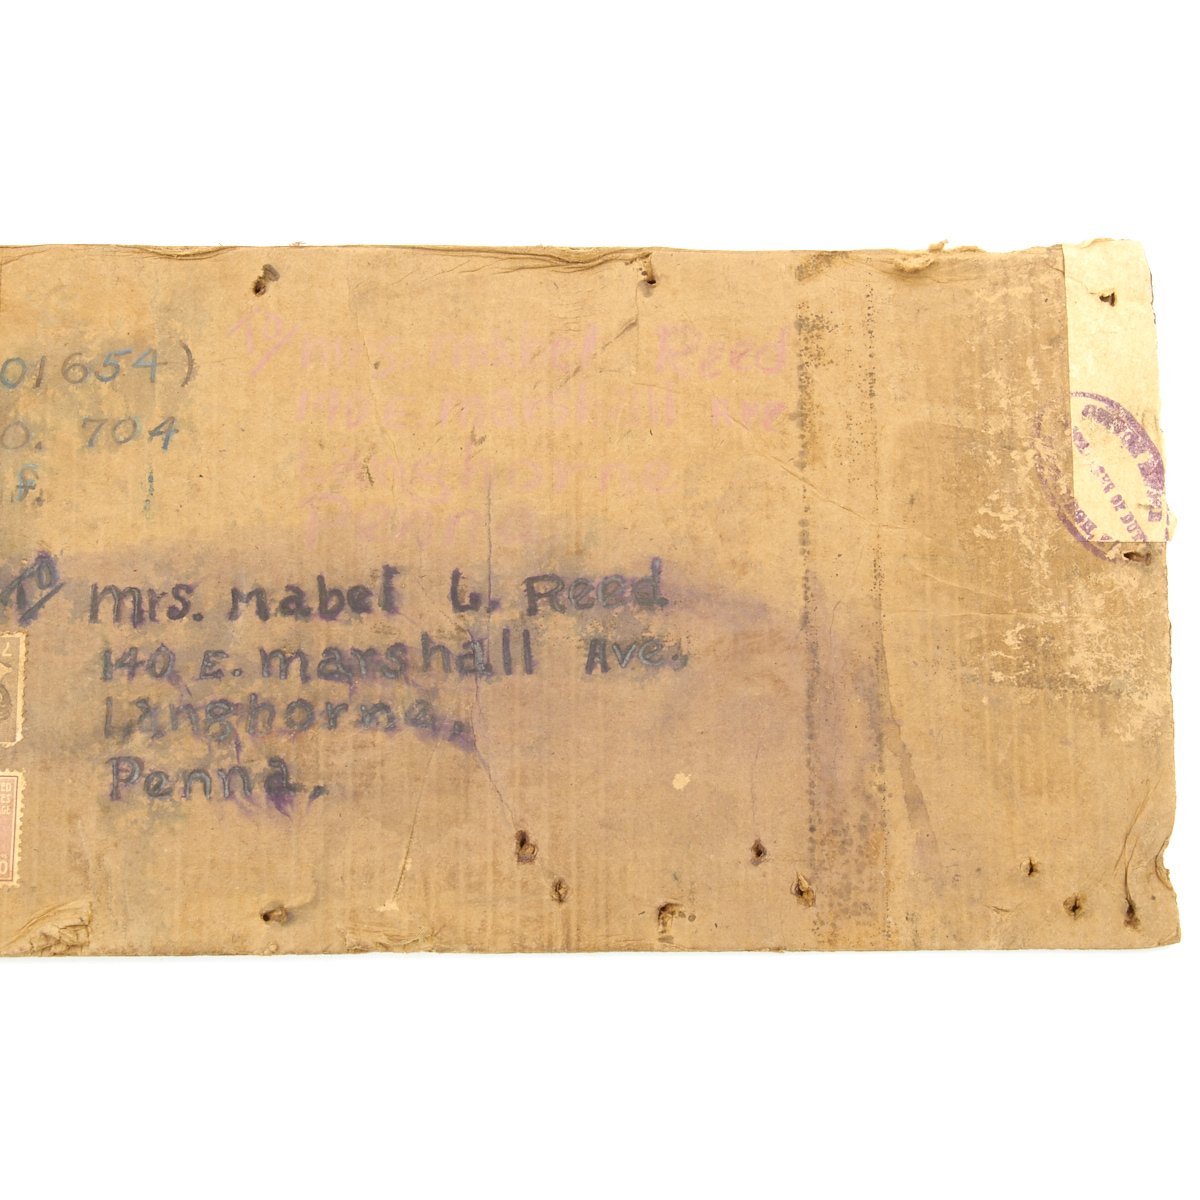 01654)
O. 704
f.
To/ Mrs. Mabel Reed
140 Marshall Ave
Langhorne
Penna
To/ Mrs. Mabel L. Reed
140 E. Marshall Ave.
Langhorne,
Penna.